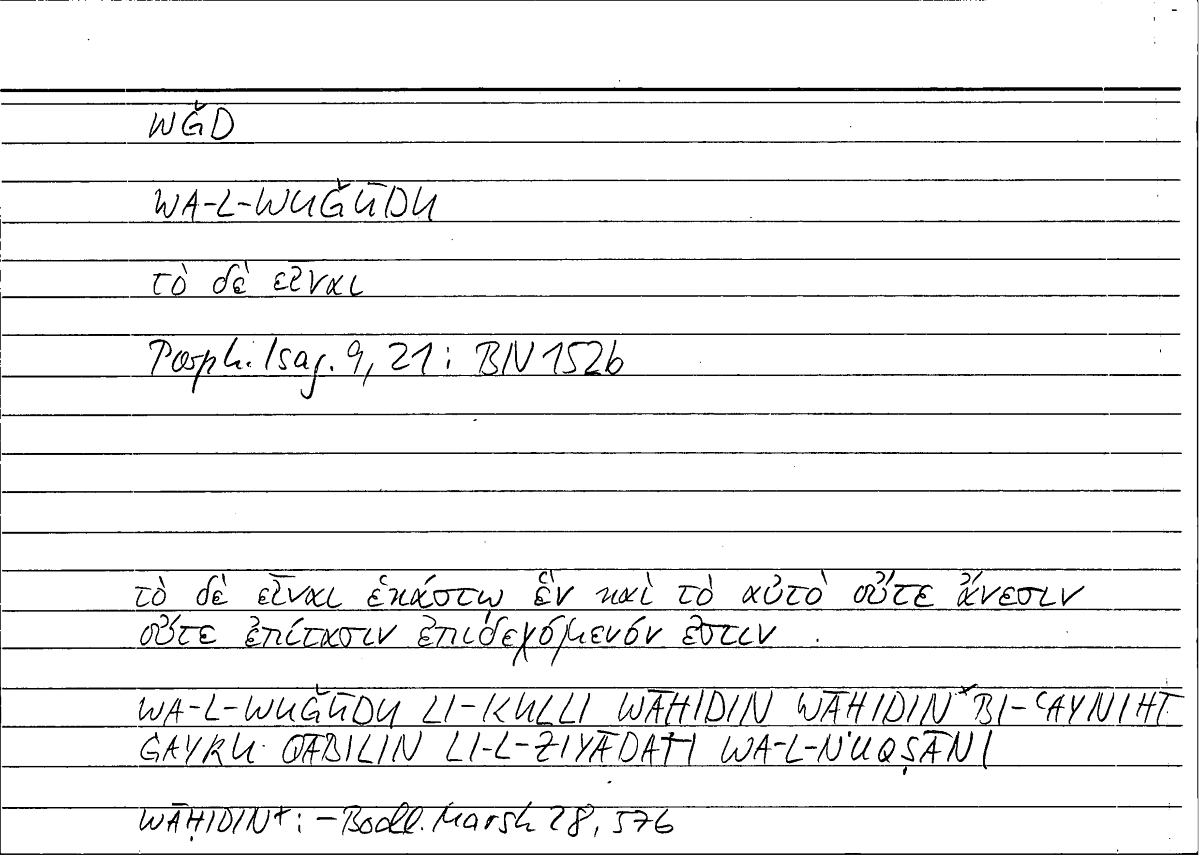 WǦD
WA-L-WUǦŪDU
τὸ δὲ εἶναι
Porph. Isag. 9, 21 : BN 152b
τὸ δὲ εἶναι ἑκάστῳ ἓν καὶ τὸ αὐτὸ οὔτε ἄνεσιν
οὔτε ἐπίτασιν ἐπιδεχόμενόν ἐστιν .
WA-L-WUǦŪDU LI-KULLI WĀHIDIN WĀHIDIN⁺ BI-ʿAYNIHĪ
ĠAYRU QĀBILIN LI-L-ZIYĀDATI WA-L-NUQṢĀNI
WĀḤIDIN⁺ : – Bodl. Marsh 28, 57b